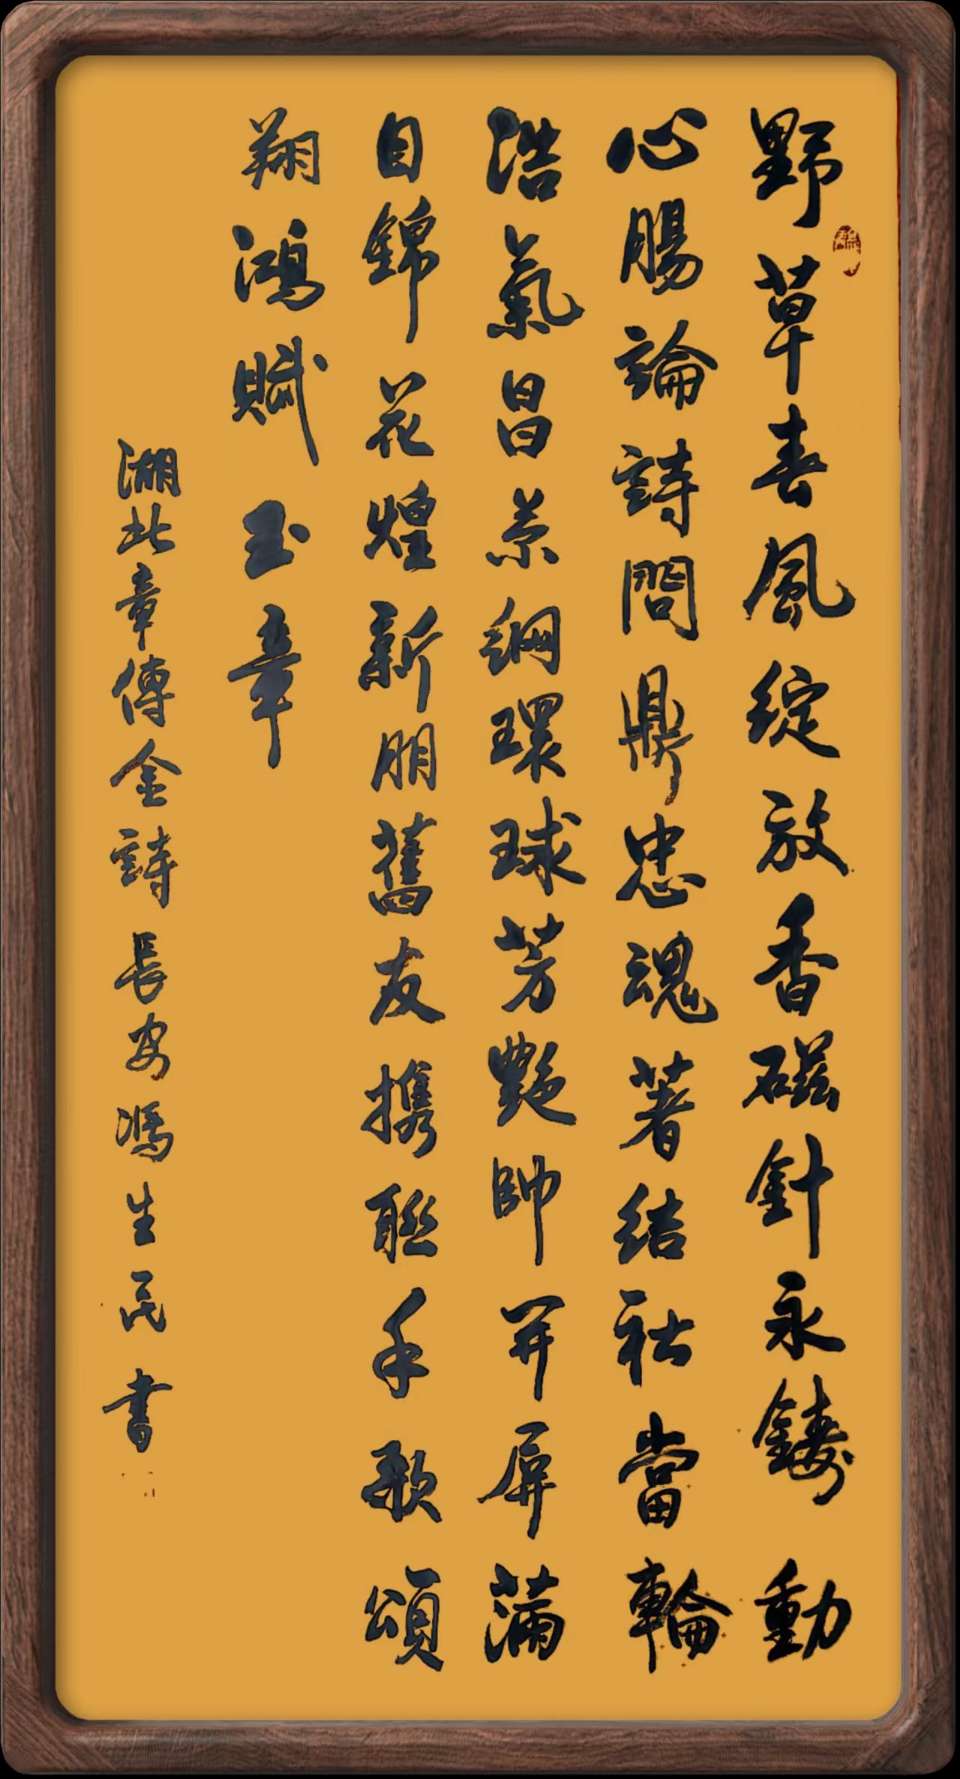 野草春風綻放香磁針永鑄動
心腸論詩問鼎忠魂著結社當輪
浩氣昌景綱環球芳艷帥開屏滿
目錦花煌新朋舊友携聯手歌頌
翔鴻賦玉章
湖北章傳金詩長安馮生民書